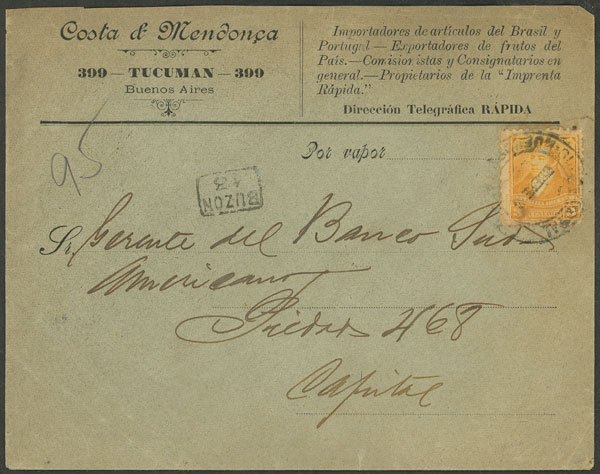 Costa & Mendonça
399 — TUCUMAN — 399
Buenos Aires
Importadores de artículos del Brasil y
Portugal — Exportadores de frutos del
País.—Comisionistas y Consignatarios en
general.—Propietarios de la "Imprenta
Rápida."
Dirección Telegráfica RÁPIDA
95
Por vapor
BUZON
43
Sr. Gerente del Banco Sud
Americano
Piedad 468
Capital